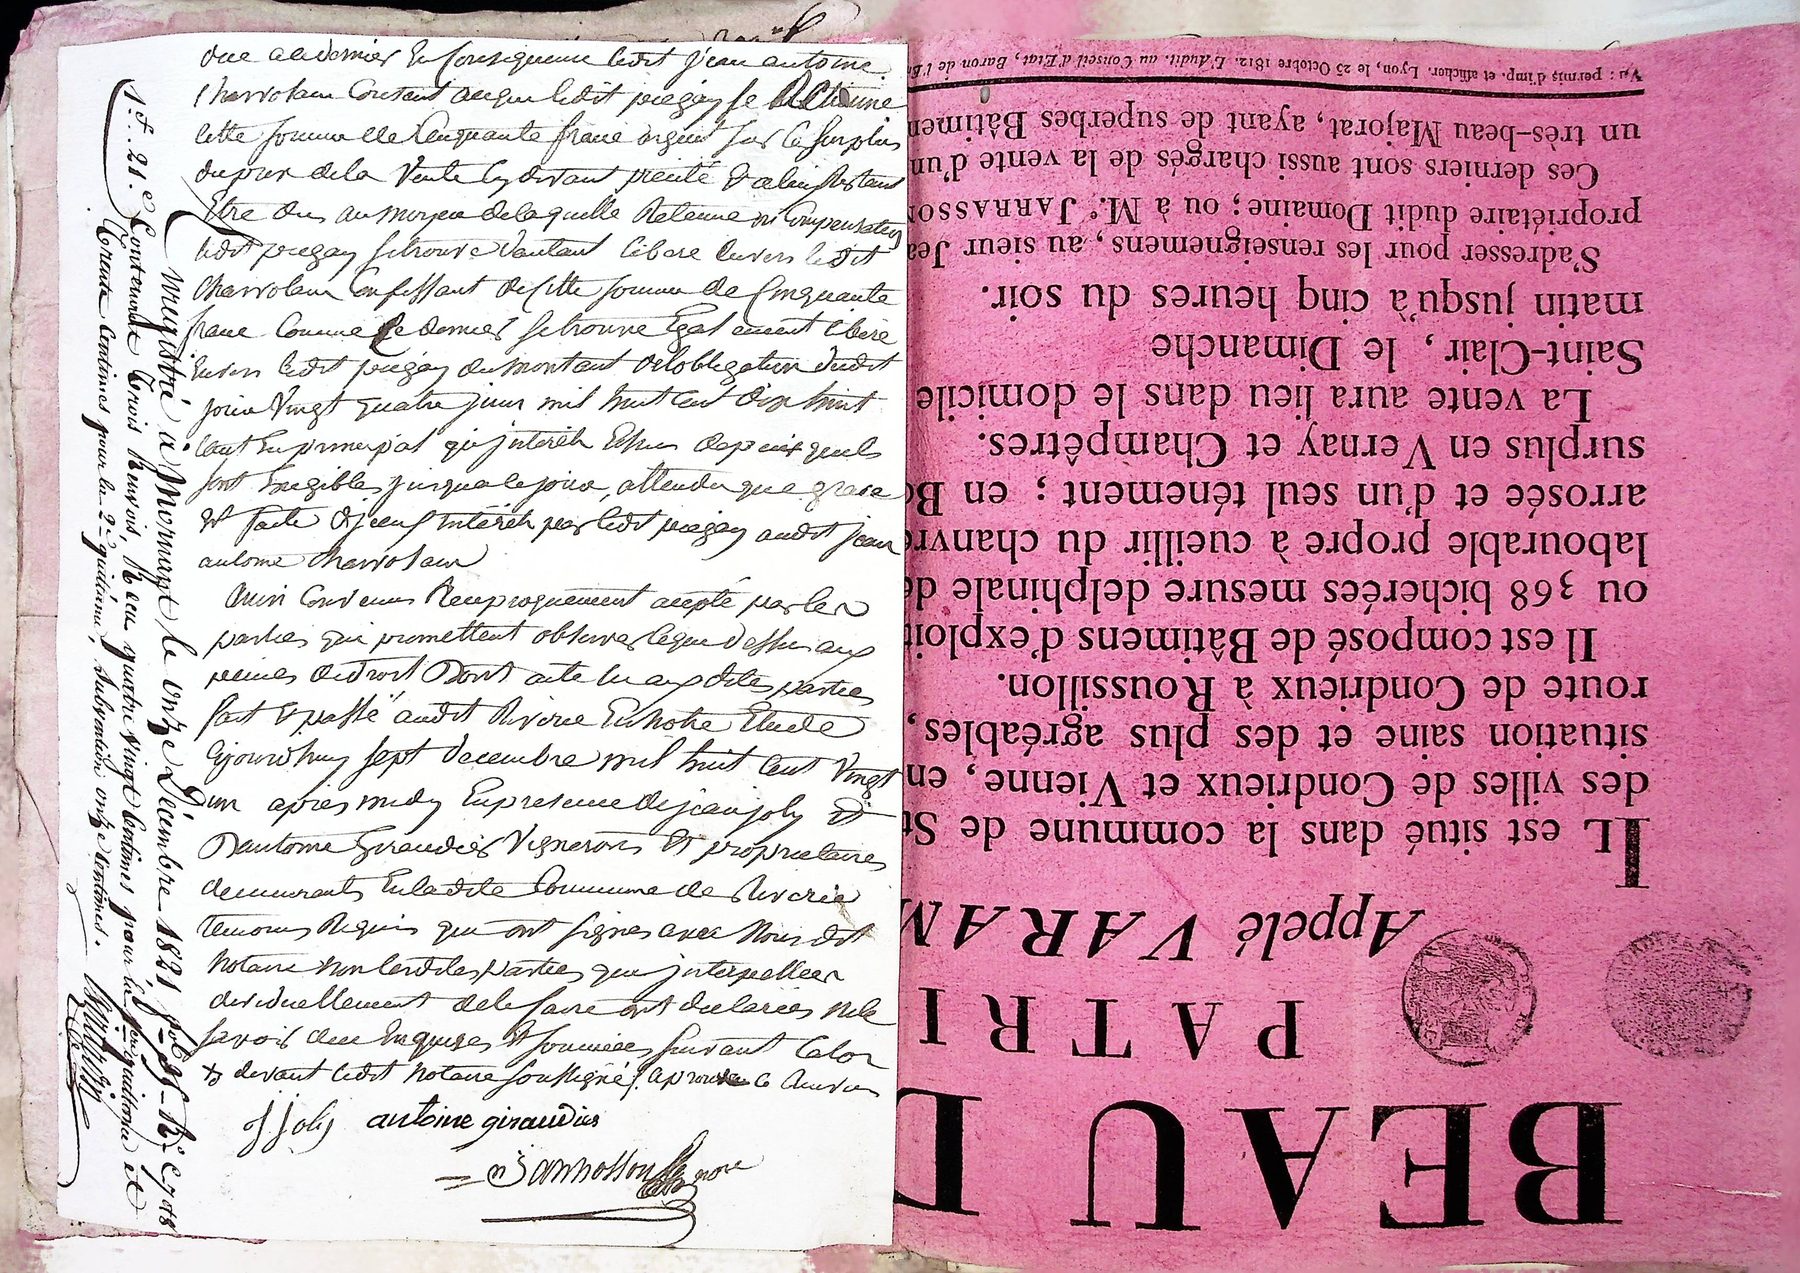 due a ce dernier En Consequence ledit jean antoine
Charvolain Consent a ce que ledit piegay se Retienne
cette somme de Cinquante franc argent sur le surplus
du prix de la Vente Cy devant precité & a lui Restant
Etre dus au moyen de laquelle Retenue ou Compensation
ledit piegay se trouve d'autant libere Envers ledit
Charvolain Confessant de Cette somme de Cinquante
franc Comme Ce dernier se trouve Egalement libere
Envers ledit piegay du montant de l'obligation dudit
jour Vingt quatre juin mil huit cent dix huit
tant En principal qu'interets Echus depuis quils
sont Exigibles jusqua ce jour, attendu que grace
Est faite de ceux interets par ledit piegay audit jean
antoine Charvolain
Ainsi Convenu Reciproquement accepté par les
parties qui promettent observer ce que dessus aux
peines de droit Dont acte lu aux dites parties
fait & passé audit Riverie En notre Etude
Cejourdhuy sept decembre mil huit Cent Vingt
un apres midy En presence de jean joly et
D'antoine Giraudier Vignerons & proprietaires
demeurants En la dite Commune de Riverie
temoins Requis qui ont signes avec Nous dit
notaire non lesdites parties qui interpellees
de le faire ont declarées ne le
savoir de ce Enquises & sommées suivant la loi
devant ledit notaire soussigné. approuvé
j joly antoine giraudier
Jarrosson nore
Enregistré à Mornant le onze Décembre 1821, fol. 95 Ro Cases
1 f. 21. c Contenant trois Renvois, Reçu quatre vingt centimes pour la 1ere quittance et
trente centimes pour la 2e quittance, subvention onze centimes.
Vu : permis d'imp. et afficher. Lyon, le 25 Octobre 1812. L'Audit. au Conseil d'Etat, Baron de l'E
un très-beau Majorat, ayant de superbes Bâtimen
Ces derniers sont aussi chargés de la vente d'un
propriétaire dudit Domaine ; ou à M.e JARRASSO
S'adresser pour les renseignemens, au sieur Jea
matin jusqu'à cinq heures du soir.
Saint-Clair, le Dimanche
La vente aura lieu dans le domicile
surplus en Vernay et Champêtres.
arrosée et d'un seul ténement ; en Bo
labourable propre à cueillir du chanvre
ou 368 bicherées mesure delphinale de
Il est composé de Bâtimens d'exploit
route de Condrieux à Roussillon.
situation saine et des plus agréables,
des villes de Condrieux et Vienne, en
IL est situé dans la commune de St
Appelé VARAM
PATRI
BEAU D